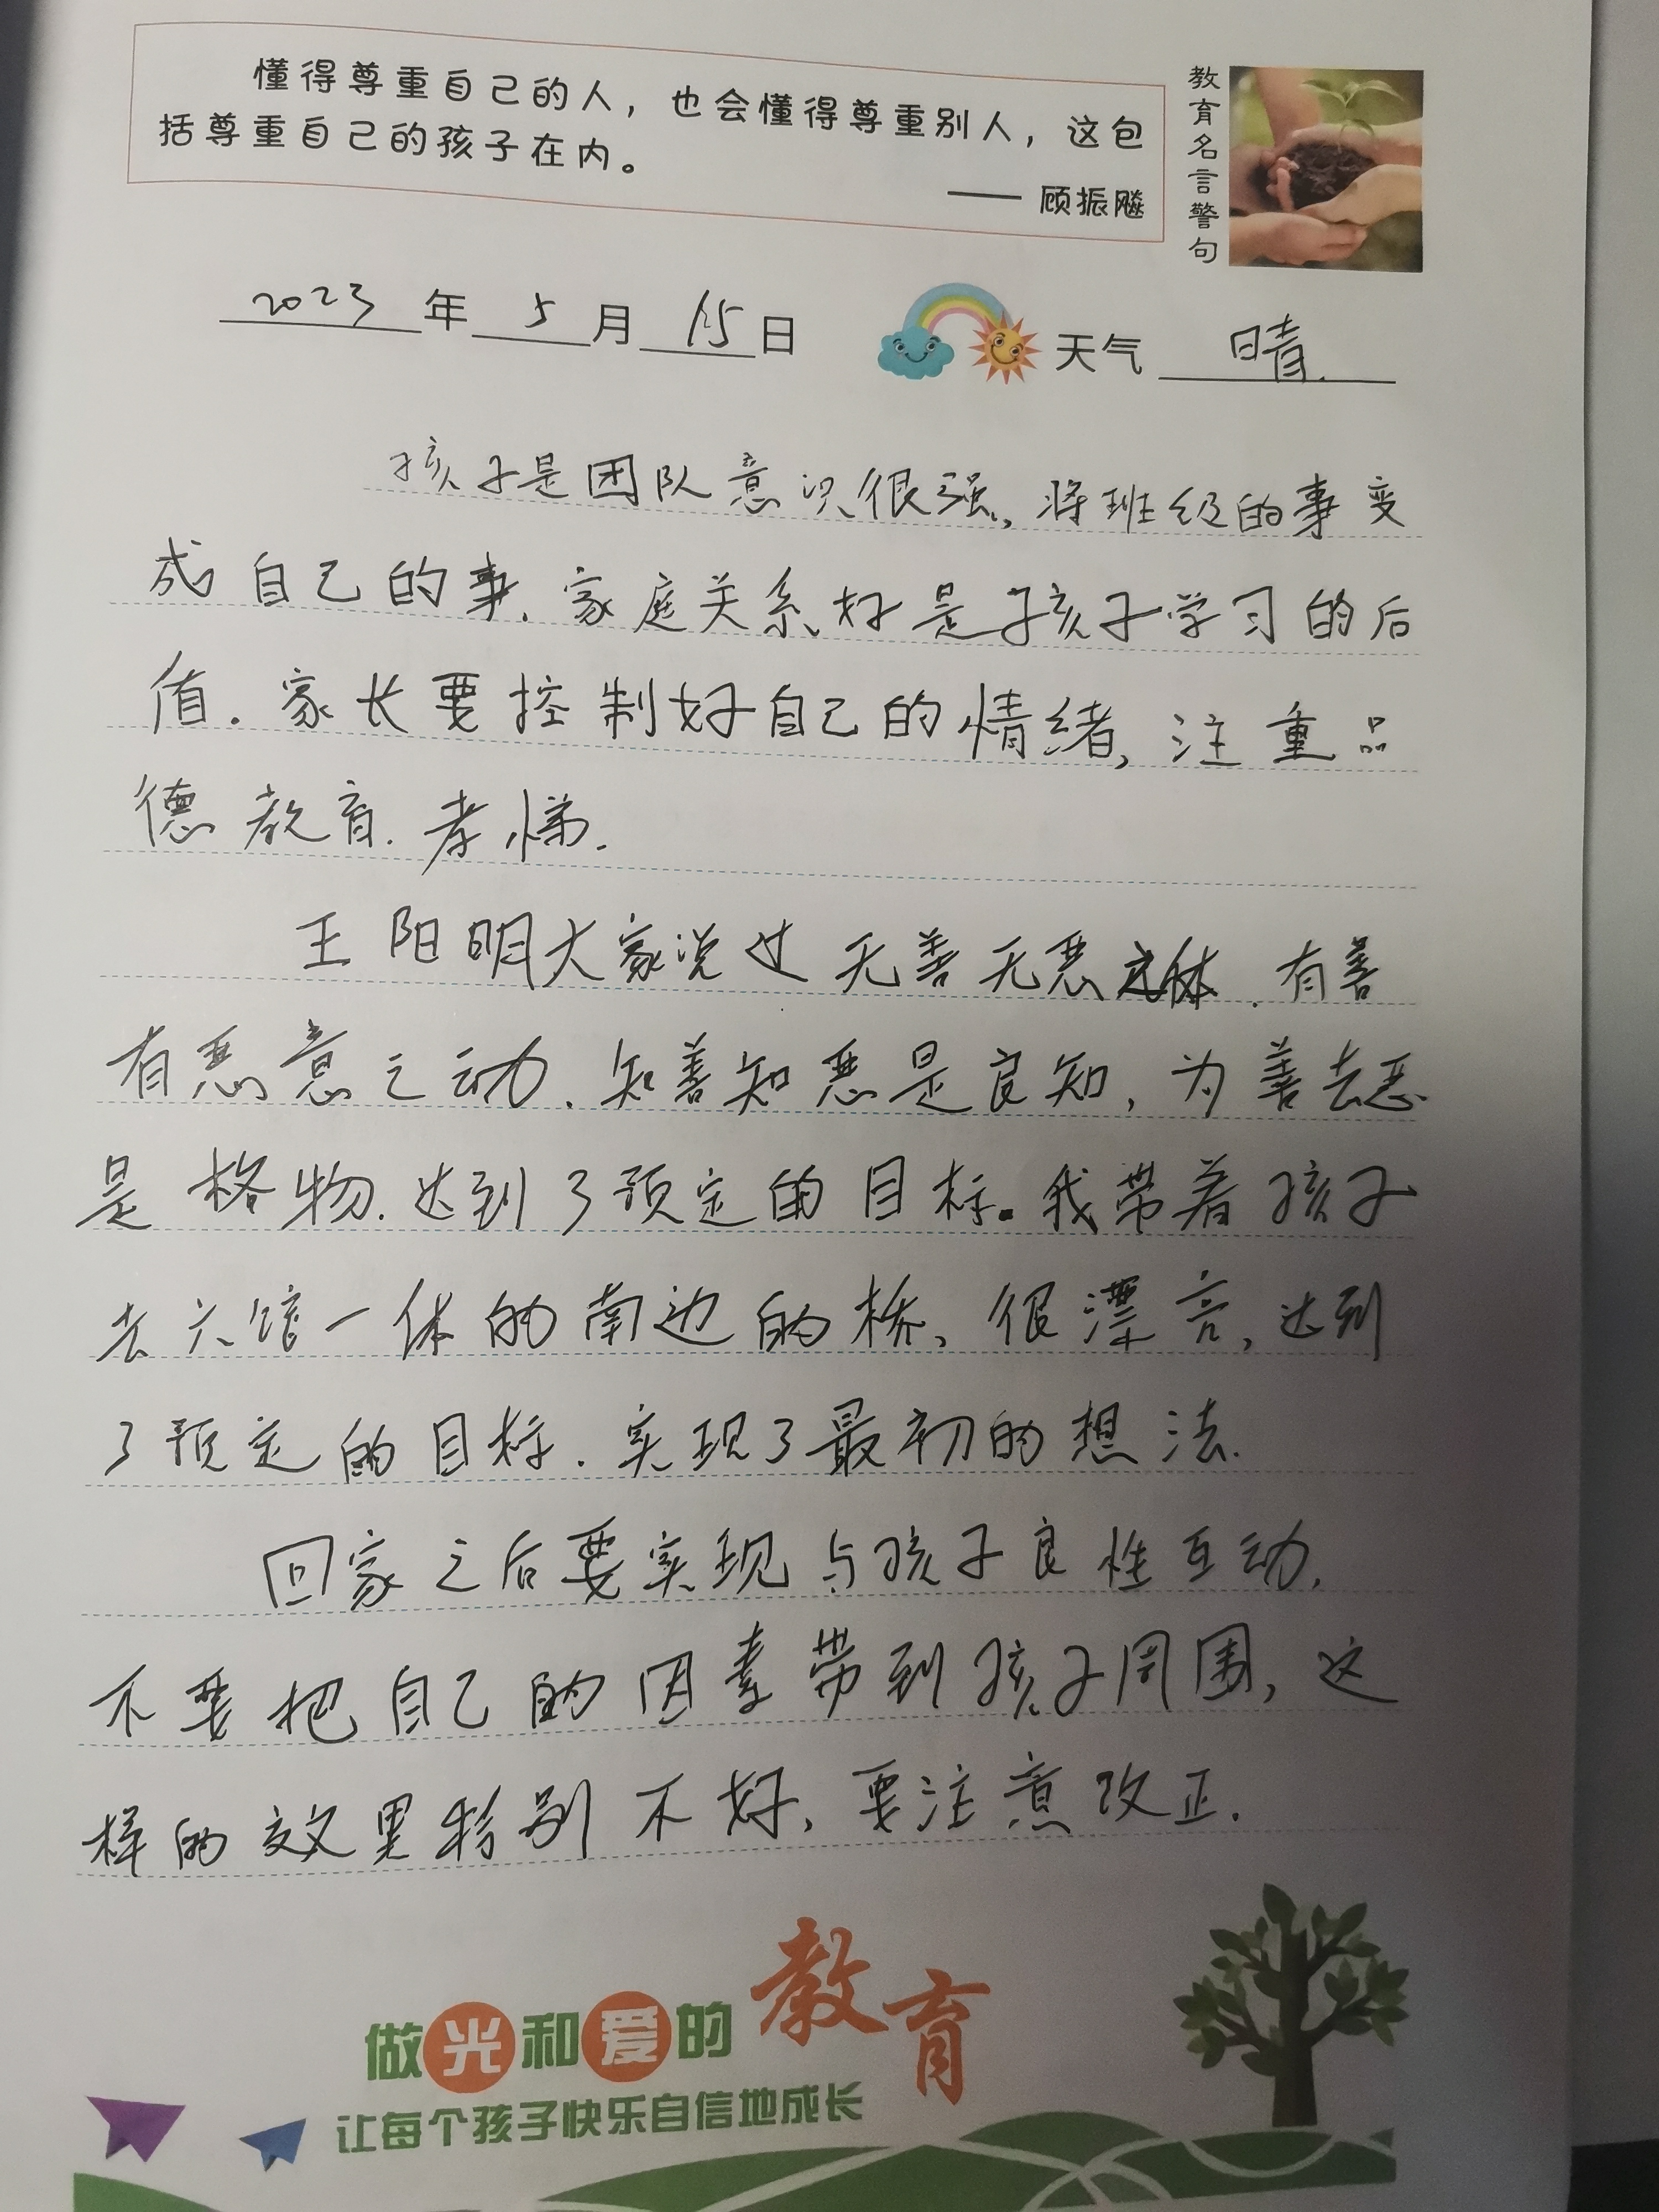 懂得尊重自己的人，也会懂得尊重别人，这包
括尊重自己的孩子在内。
—— 顾振飚
教育名言警句
2023年5月15日 天气 晴.
孩子是团队意识很强、将班级的事变
成自己的事.家庭关系好是孩子学习的后
盾.家长要控制好自己的情绪,注重品
德教育.孝悌.
王阳明大家说过无善无恶之体.有善
有恶意之动.知善知恶是良知,为善去恶
是格物.达到了预定的目标。我带着孩子
去六馆一体的南边的桥、很漂亮,达到
了预定的目标.实现了最初的想法.
回家之后要实现与孩子良性互动.
不要把自己的因素带到孩子周围,这
样的效果特别不好、要注意改正.
做光和爱的教育
让每个孩子快乐自信地成长